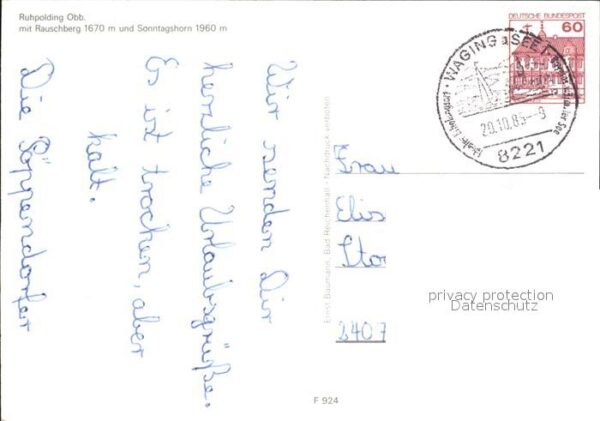 Ruhpolding Obb.
mit Rauschberg 1670 m und Sonntagshorn 1960 m
Wir senden Dir
herzliche Urlaubsgrüße.
Es ist trocken, aber
kalt.
Die Söppendorfer
Ernst Baumann, Bad Reichenhall - Nachdruck verboten
DEUTSCHE BUNDESPOST
60
WAGING a SEE 1
20.10.85-9
8221
Frau
Elis
Sto
2407
privacy protection
Datenschutz
F 924